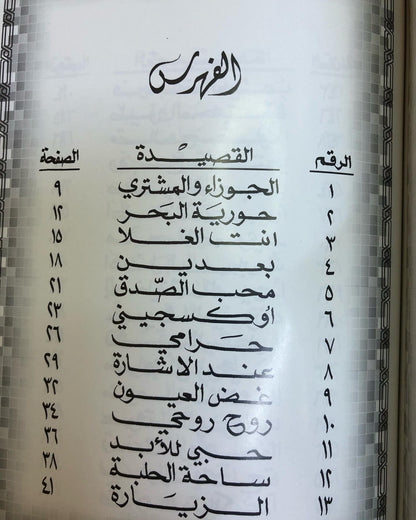 الفهرس
الرقم القصيدة الصفحة
١ الجوزاء والمشتري ٩
٢ حورية البحر ١٢
٣ انت الغلا ١٥
٤ بعدين ١٨
٥ محب الصّدق ٢١
٦ اوكسجيني ٢٣
٧ حرامي ٢٦
٨ عند الاشارة ٢٩
٩ غض العيون ٣٢
١٠ روح روحي ٣٤
١١ حبي للأبد ٣٦
١٢ ساحة الحلبة ٣٨
١٣ الزيارة ٤١